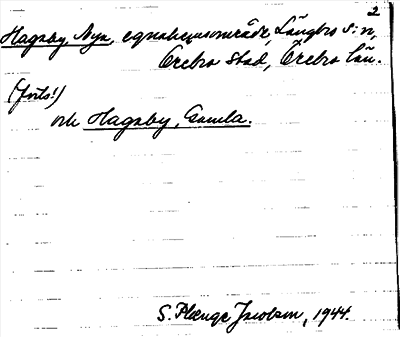 2
Hagaby, Nya, egnahemsområde, Längbro s:n,
Örebro stad, Örebro län.
(forts!)
och Hagaby, Gamla.
S. Plænge Jacobson, 1944.